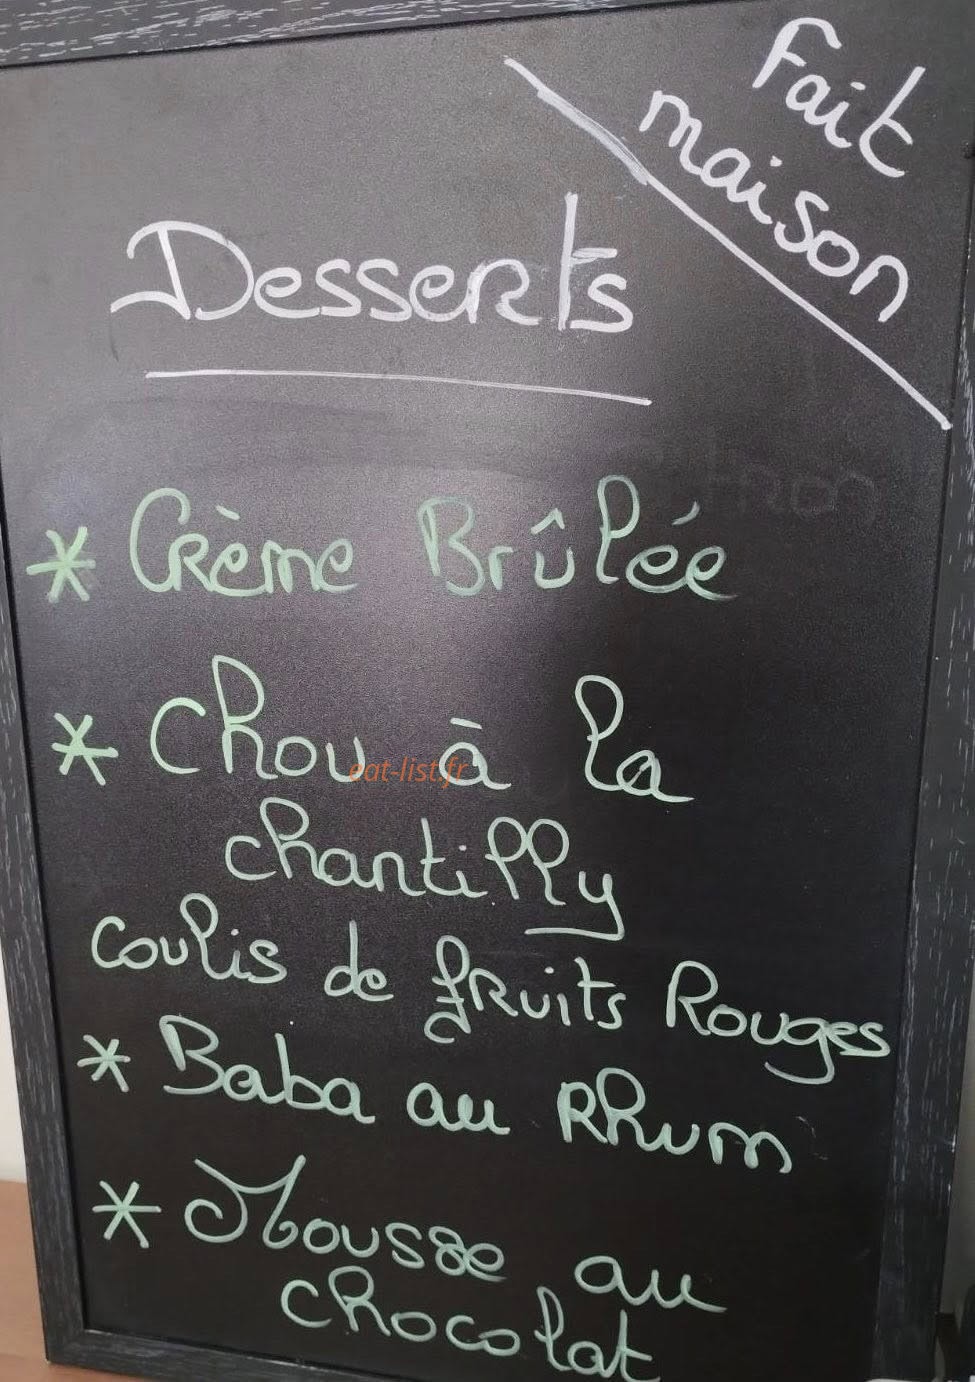 Fait
maison
Desserts
* Crème Brûlée
* Chou à la
eat-list.fr
chantilly
coulis de fruits Rouges
* Baba au Rhum
* Mousse au
chocolat